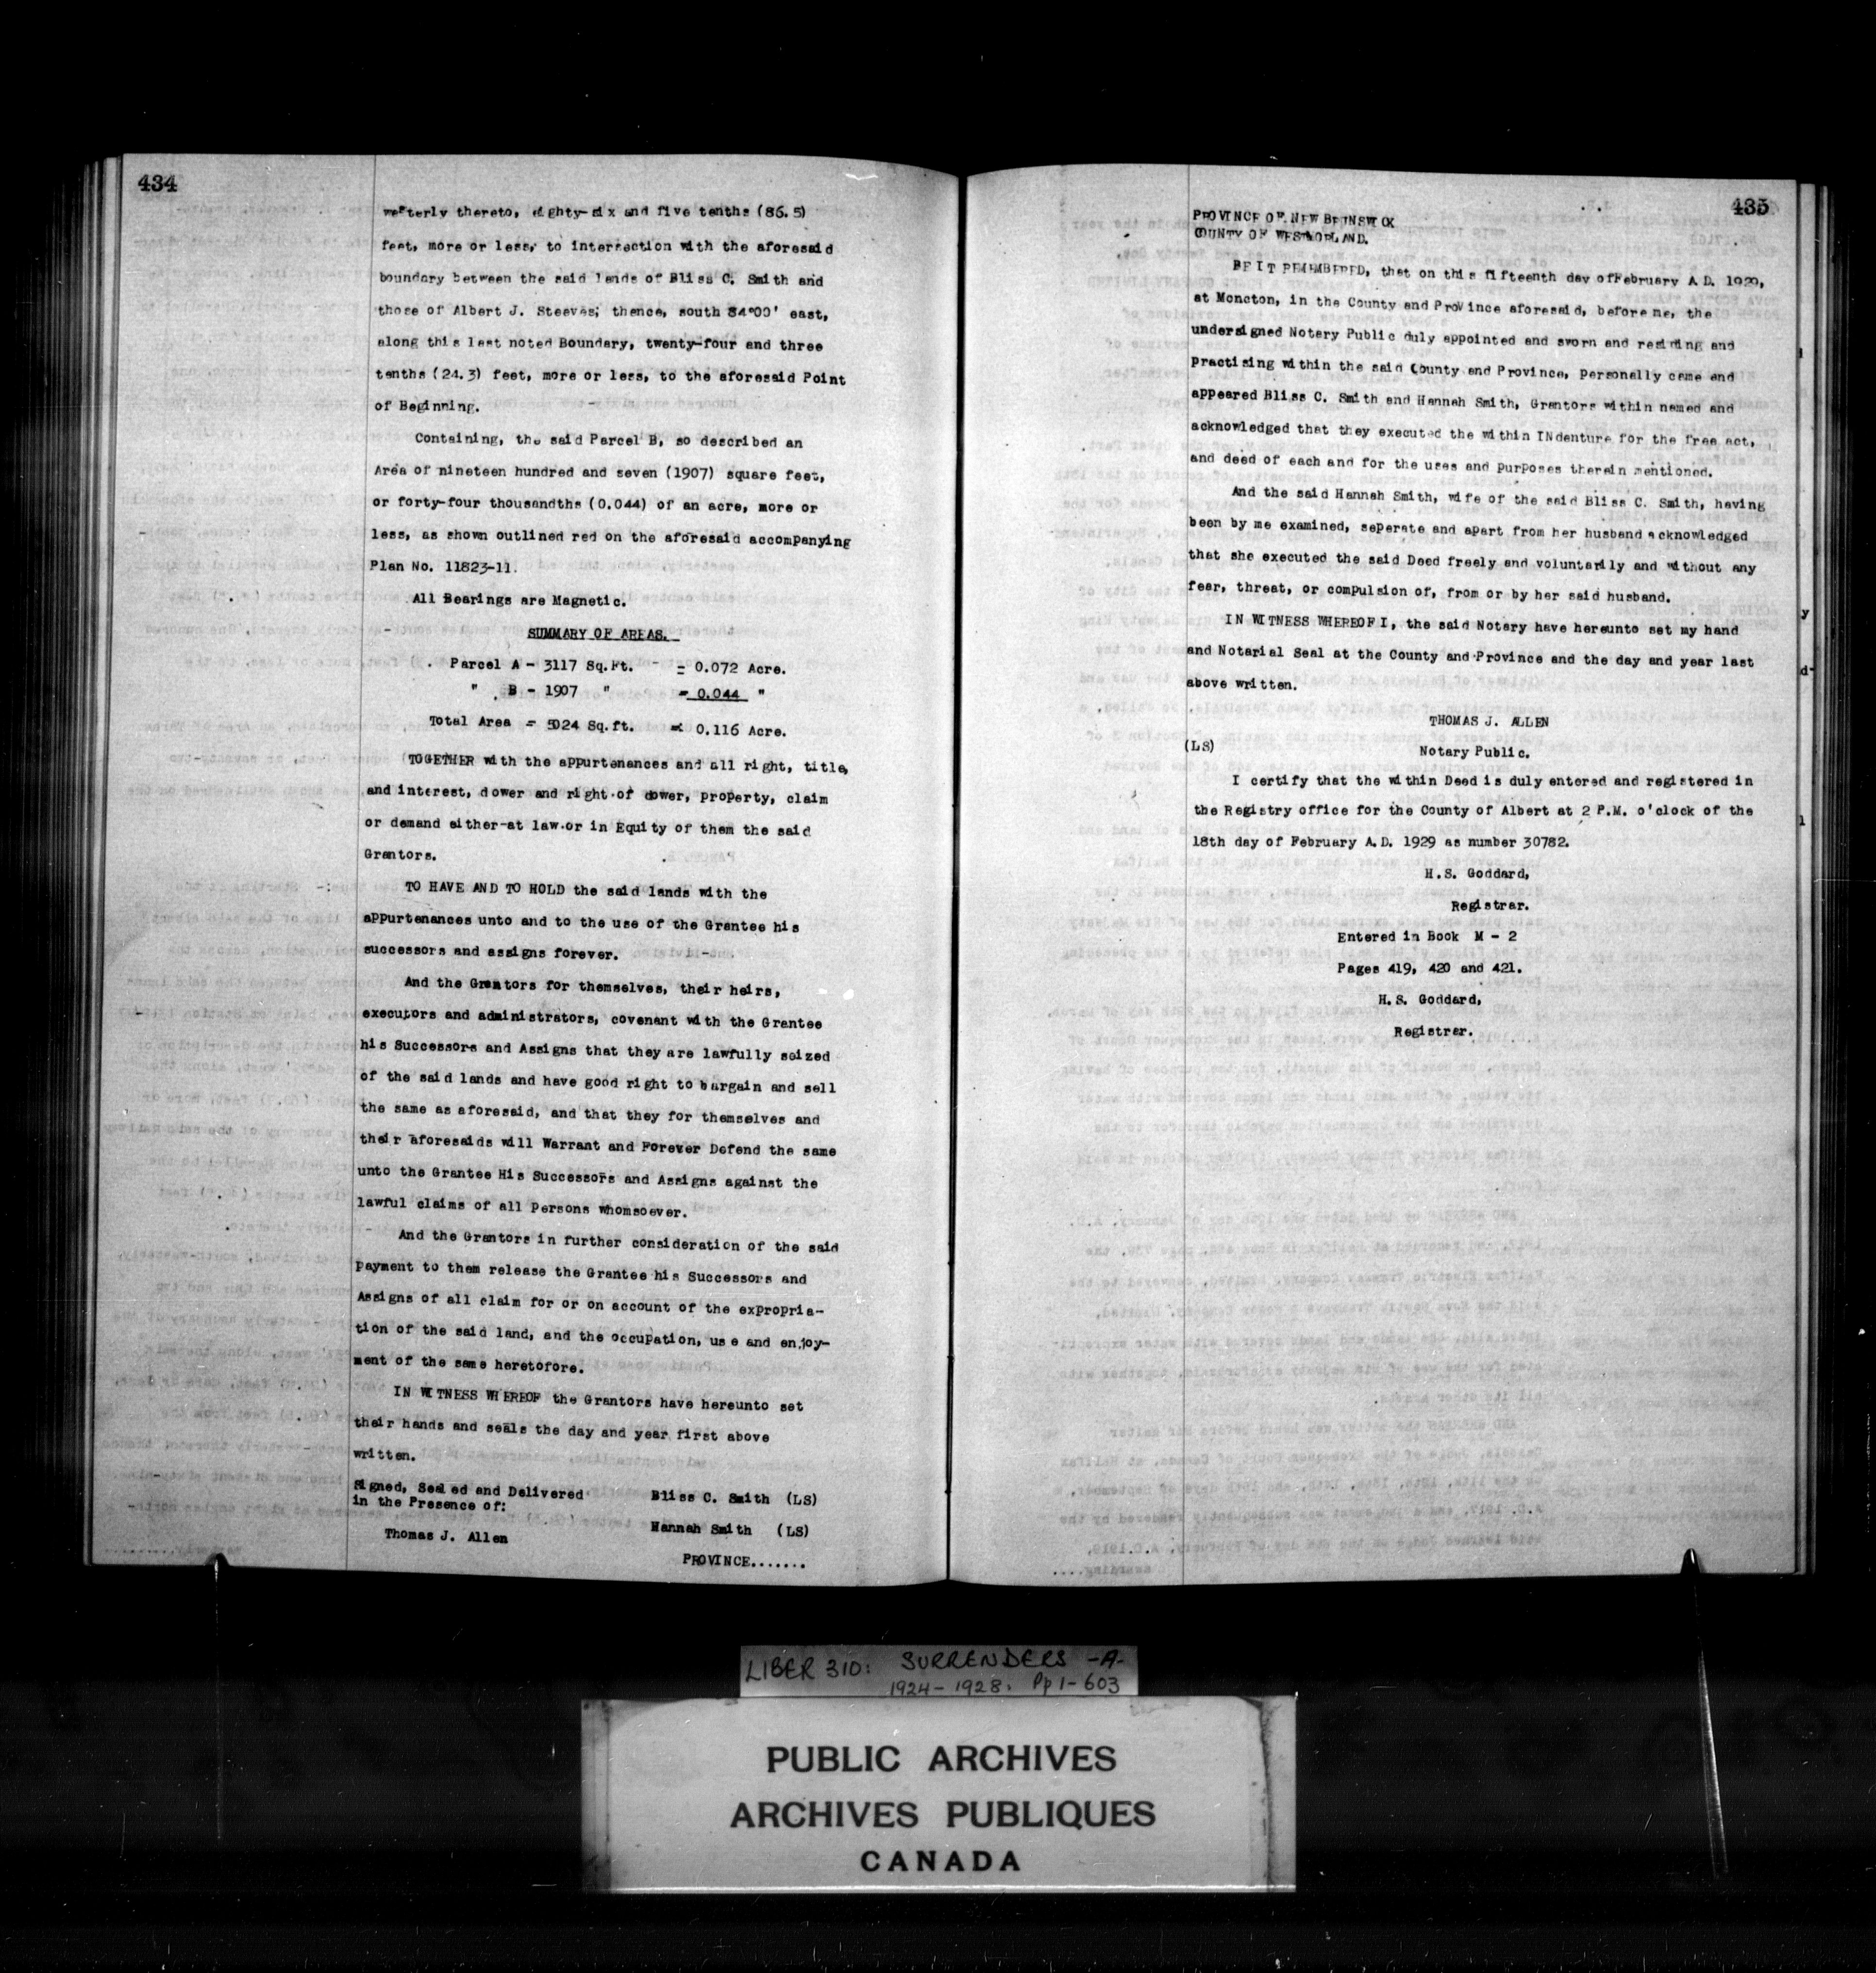 434
westerly thereto, eighty-six and five tenths (86.5)
feet, more or less, to intersection with the aforesaid
boundary between the said lands of Bliss C. Smith and
those of Albert J. Steeves; thence, south 84°00' east,
along this last noted Boundary, twenty-four and three
tenths (24.3) feet, more or less, to the aforesaid Point
of Beginning.
Containing, the said Parcel B, so described an
Area of nineteen hundred and seven (1907) square feet,
or forty-four thousandths (0.044) of an acre, more or
less, as shown outlined red on the aforesaid accompanying
Plan No. 11823-11.
All Bearings are Magnetic.
SUMMARY OF AREAS.
Parcel A - 3117 Sq.Ft. = 0.072 Acre.
" B - 1907 " = 0.044 "
Total Area = 5024 Sq.ft. = 0.116 Acre.
TOGETHER with the appurtenances and all right, title,
and interest, dower and right of dower, property, claim
or demand either at law or in Equity of them the said
Grantors.
TO HAVE AND TO HOLD the said lands with the
appurtenances unto and to the use of the Grantee his
successors and assigns forever.
And the Grantors for themselves, their heirs,
executors and administrators, covenant with the Grantee
his Successors and Assigns that they are lawfully seized
of the said lands and have good right to bargain and sell
the same as aforesaid, and that they for themselves and
their aforesaids will Warrant and Forever Defend the same
unto the Grantee His Successors and Assigns against the
lawful claims of all Persons whomsoever.
And the Grantors in further consideration of the said
payment to them release the Grantee his Successors and
Assigns of all claim for or on account of the expropria-
tion of the said land, and the occupation, use and enjoy-
ment of the same heretofore.
IN WITNESS WHEREOF the Grantors have hereunto set
their hands and seals the day and year first above
written.
Signed, Sealed and Delivered
in the Presence of:
Bliss C. Smith (LS)
Hannah Smith (LS)
Thomas J. Allen
PROVINCE.......
435
PROVINCE OF NEW BRUNSWICK
COUNTY OF WESTMORLAND.
BE IT REMEMBERED, that on this fifteenth day ofFebruary A.D. 1929,
at Moncton, in the County and Province aforesaid, before me, the
undersigned Notary Public duly appointed and sworn and residing and
Practising within the said County and Province, personally came and
appeared Bliss C. Smith and Hannah Smith, Grantors within named and
acknowledged that they executed the within INdenture for the free act,
and deed of each and for the uses and purposes therein mentioned.
And the said Hannah Smith, wife of the said Bliss C. Smith, having
been by me examined, seperate and apart from her husband acknowledged
that she executed the said Deed freely and voluntarily and without any
fear, threat, or compulsion of, from or by her said husband.
IN WITNESS WHEREOF I, the said Notary have hereunto set my hand
and Notarial Seal at the County and Province and the day and year last
above written.
THOMAS J. ALLEN
(LS) Notary Public.
I certify that the within Deed is duly entered and registered in
the Registry office for the County of Albert at 2 P.M. o'clock of the
18th day of February A.D. 1929 as number 30782.
H.S. Goddard,
Registrar.
Entered in Book M - 2
Pages 419, 420 and 421.
H.S. Goddard,
Registrar.
LIBER 310: SURRENDERS -A-
1924-1928. Pp 1-603
PUBLIC ARCHIVES
ARCHIVES PUBLIQUES
CANADA